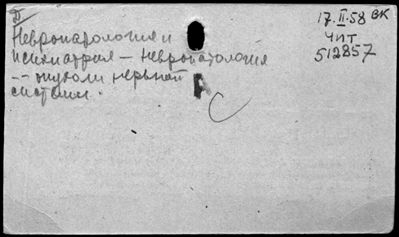 17.II.58 ВК
Невропатология и
чит
512857
психиатрия — невропатология
-- опухоли нервной
системы.